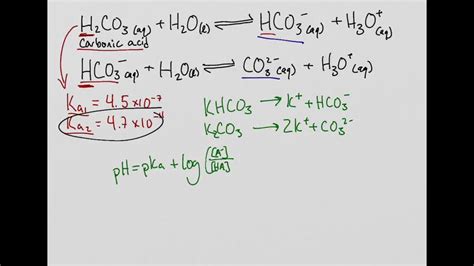 H₂CO₃ (aq) + H₂O(ℓ) ⇌ HCO₃⁻ (aq) + H₃O⁺ (aq)
Carbonic acid
HCO₃⁻ (aq) + H₂O(ℓ) ⇌ CO₃²⁻ (aq) + H₃O⁺ (aq)
Ka₁ = 4.5×10⁻⁷
Ka₂ = 4.7×10⁻¹¹
KHCO₃ → K⁺ + HCO₃⁻
K₂CO₃ → 2K⁺ + CO₃²⁻
pH = pKa + log ([A⁻]/[HA])